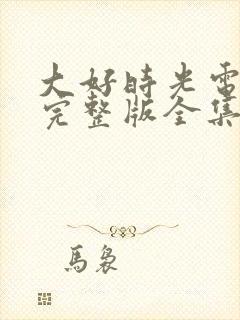 大好時光電
完整版全集
馬裊